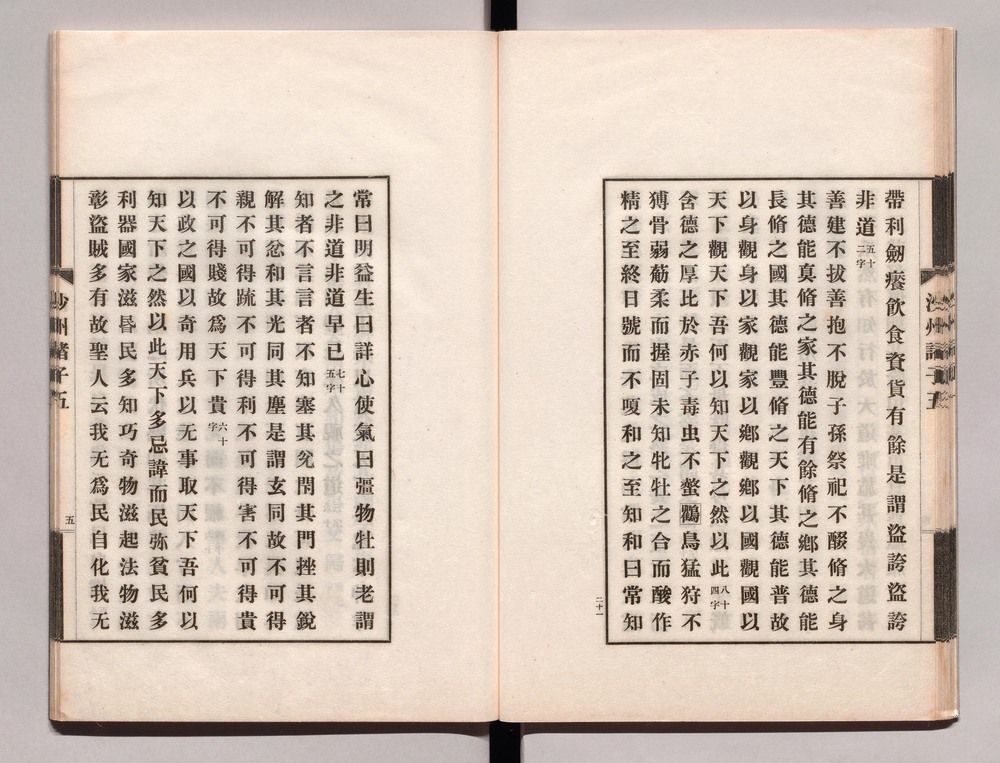 帶利劒饜飲食資貨有餘是謂盜誇盜誇
非道五十二字
善建不拔善抱不脫子孫祭祀不醊脩之身
其德能真脩之家其德能有餘脩之鄉其德能
長脩之國其德能豐脩之天下其德能普故
以身觀身以家觀家以鄉觀鄉以國觀國以
天下觀天下吾何以知天下之然以此八十四字
含德之厚比於赤子毒虫不螫鸖鳥猛狩不
猼骨弱筋柔而握固未知牝牡之合而酸作
精之至終日號而不嗄和之至知和曰常知
二十一
常曰明益生曰詳心使氣曰彊物牡則老謂
之非道非道早已七十五字
知者不言言者不知塞其兊閇其門挫其銳
解其忿和其光同其塵是謂玄同故不可得
親不可得疏不可得利不可得害不可得貴
不可得賤故爲天下貴六十字
以政之國以奇用兵以无事取天下吾何以
知天下之然以此天下多忌諱而民弥貧民多
利器國家滋昬民多知巧奇物滋起法物滋
彰盜賊多有故聖人云我无爲民自化我无
五